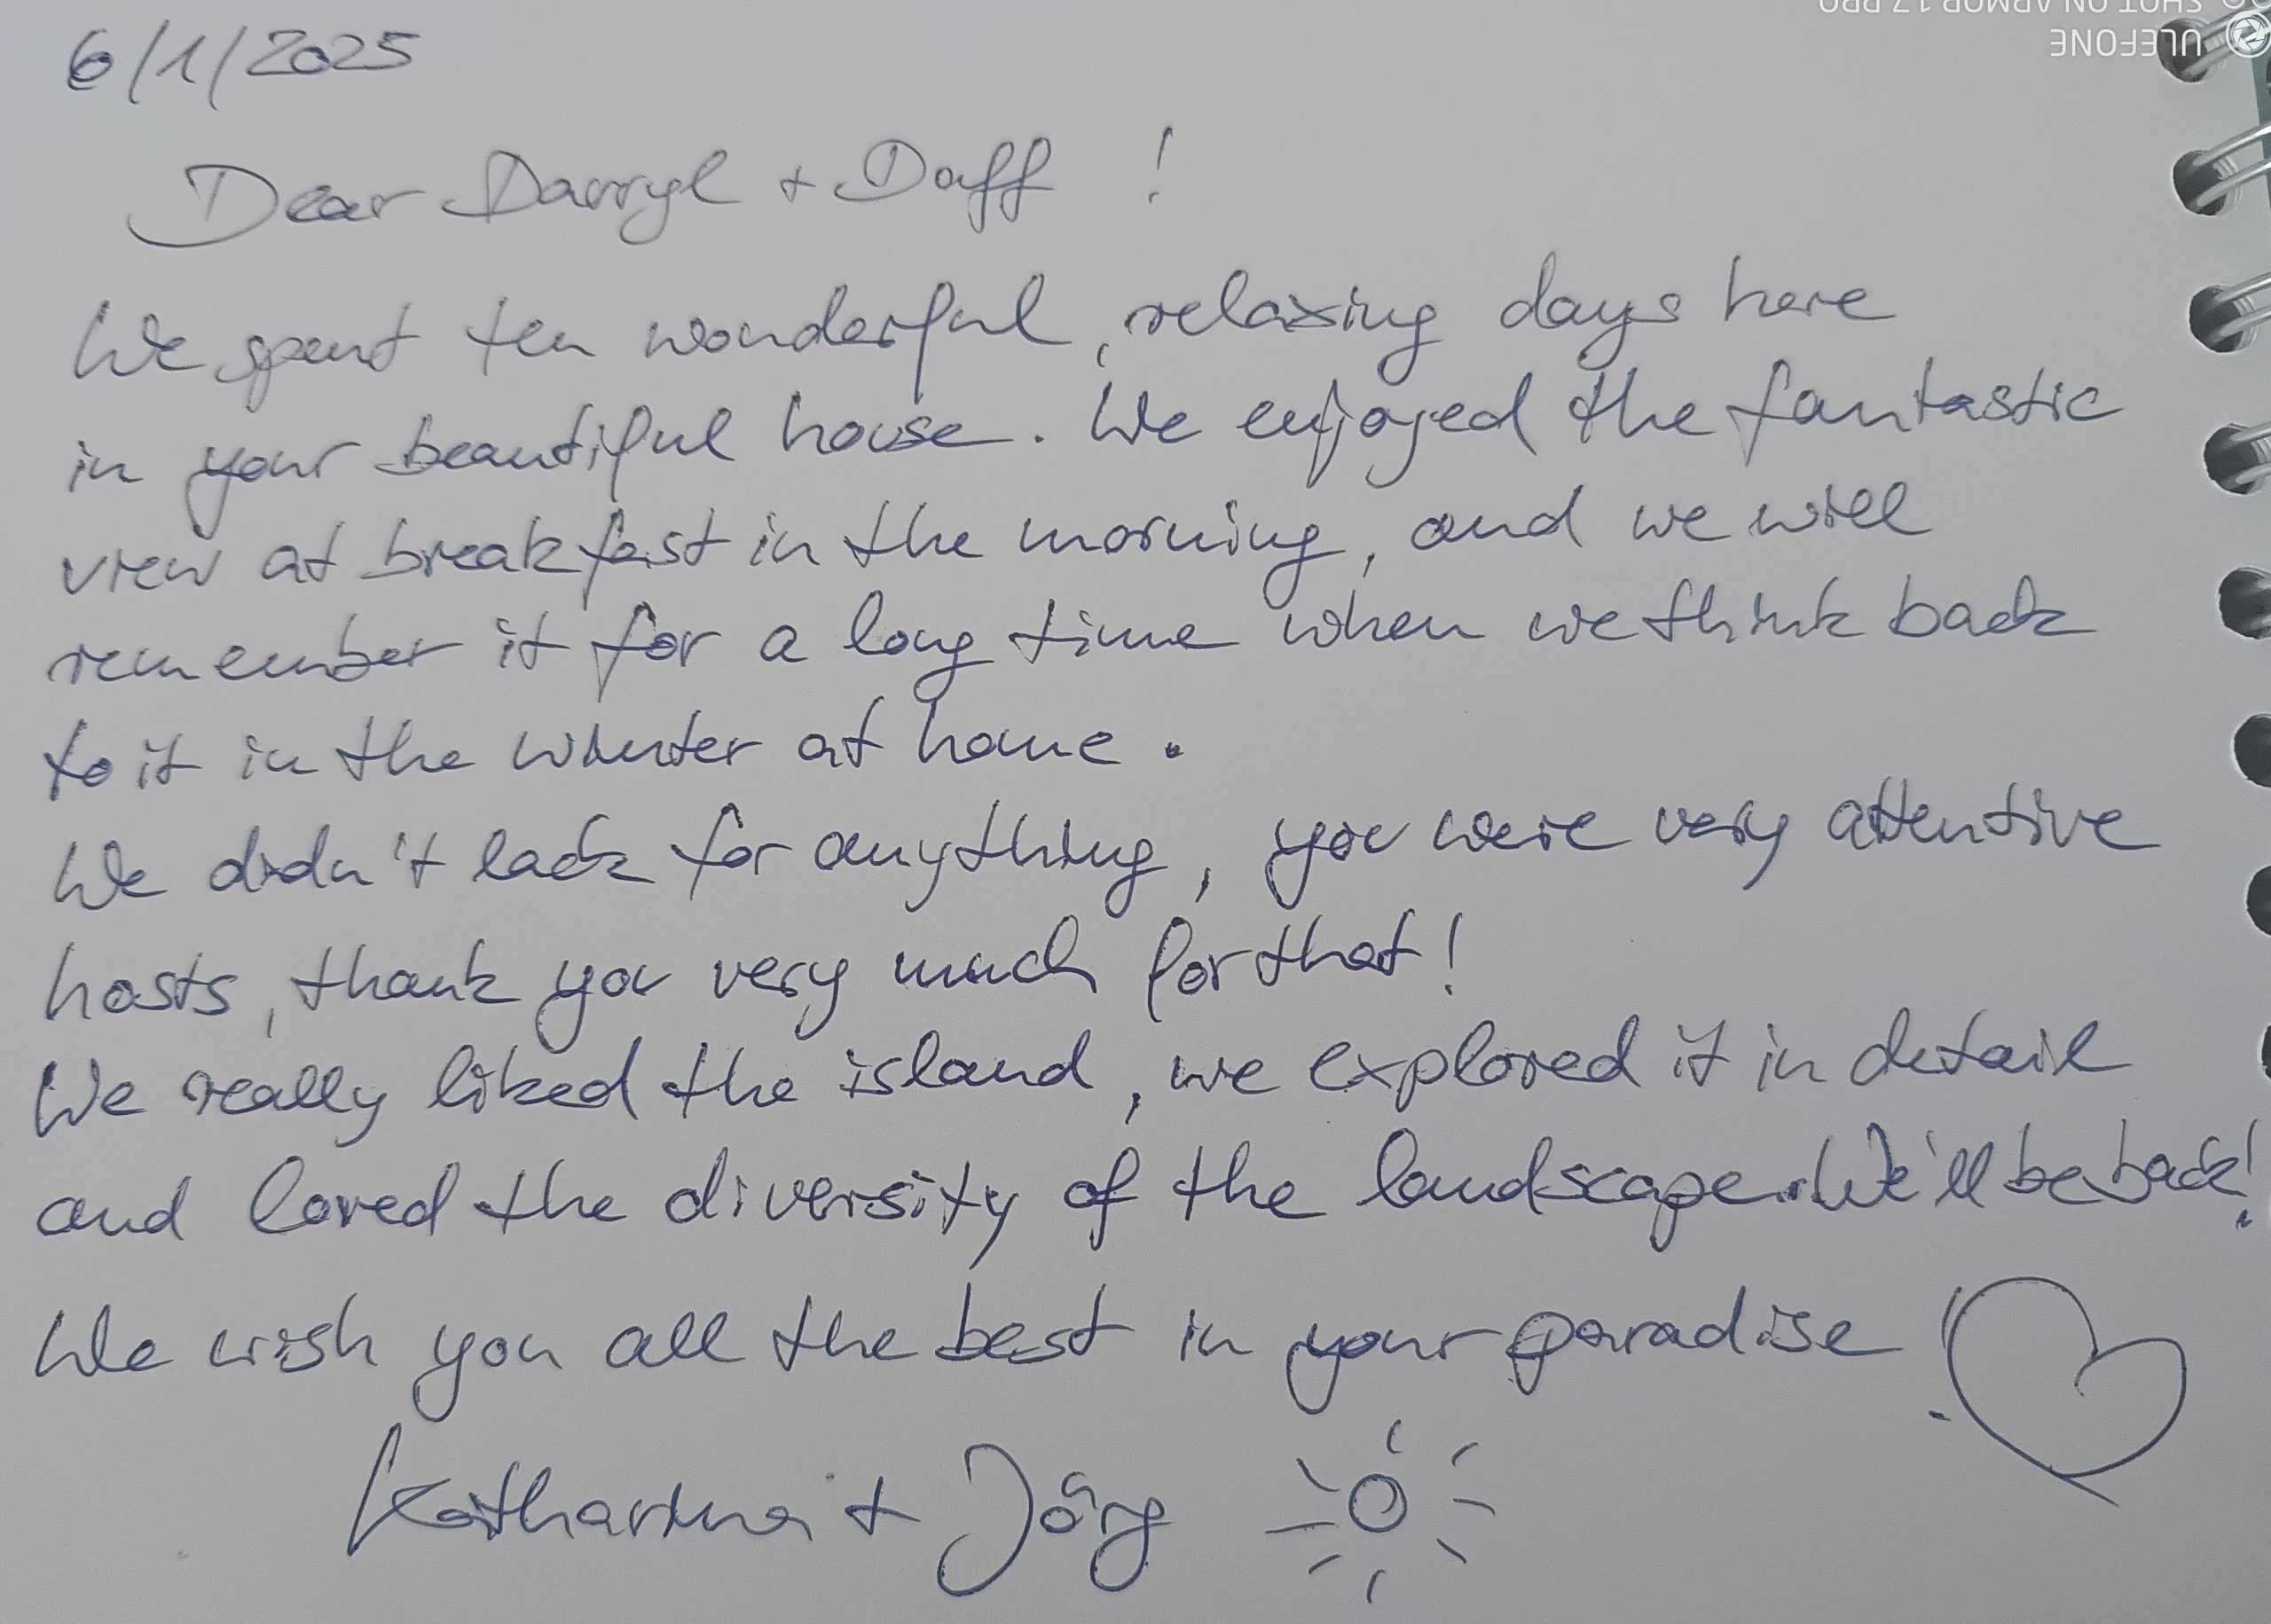 6/1/2025
Dear Darryl + Daff !
We spent ten wonderful, relaxing days here
in your beautiful house. We enjoyed the fantastic
view at breakfast in the morning, and we will
remember it for a long time when we think back
to it in the winter at home.
We didn't lack for anything, you were very attentive
hosts, thank you very much for that!
We really liked the island, we explored it in detail
and loved the diversity of the landscape. We'll be back!
We wish you all the best in your paradise!
Katharina + Jörg
ULEFONE
SHOT ON ARMOR 17 PRO